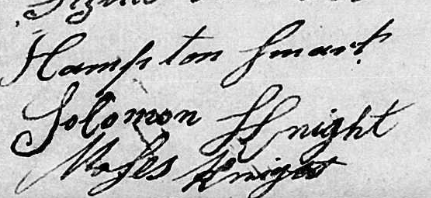 Hampton Smart
Solomon Knight
Moses Knight